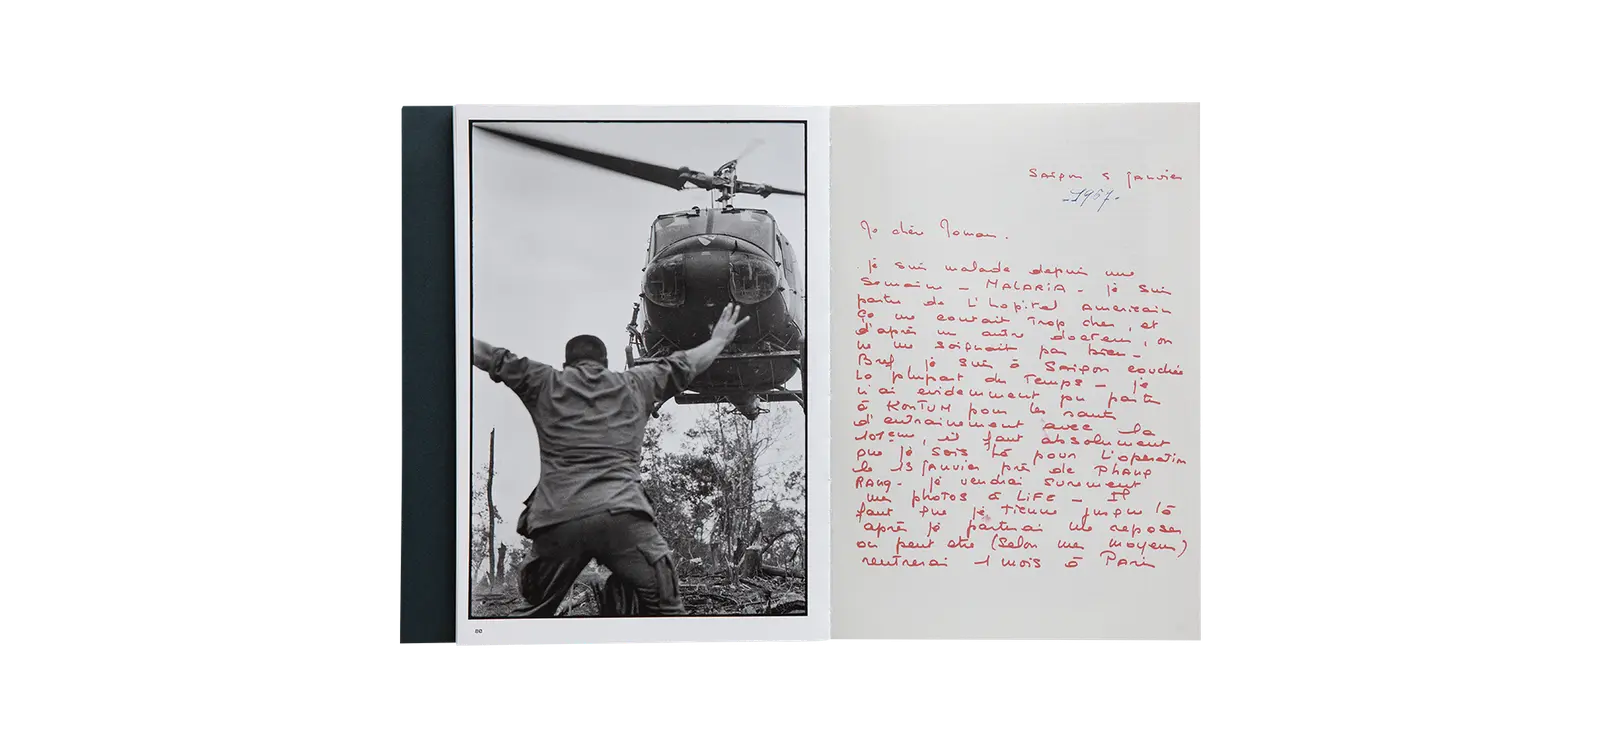 Saigon 5 janvier
- 1967. -
Ma chère Maman.
je suis malade depuis une
Semaine - MALARIA - je suis
partie de L'hopital americain
ça me coutait Trop cher, et
d'après un autre docteur, on
ne me soignait pas bien -
Bref je suis à Saigon couchée
La plupart du Temps - je
n'ai evidemment pu partir
à KONTUM pour les sauts
d'entrainement avec la
101eme, il faut absolument
que je sois là pour L'operation
le 13 janvier près de PHANG
RANG - je vendrai surement
mes photos à LiFE - Il
faut que je Tienne jusque là
après je partirai me reposer
ou peut etre (Selon mes moyens)
rentrerai 1 mois à Paris